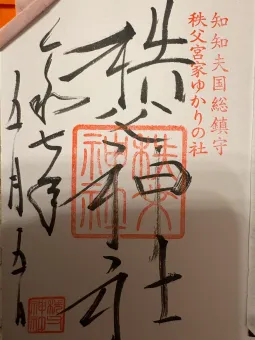 知知夫国総鎮守
秩父宮家ゆかりの社
秩父神社
令和七年
五月五日
秩父神社